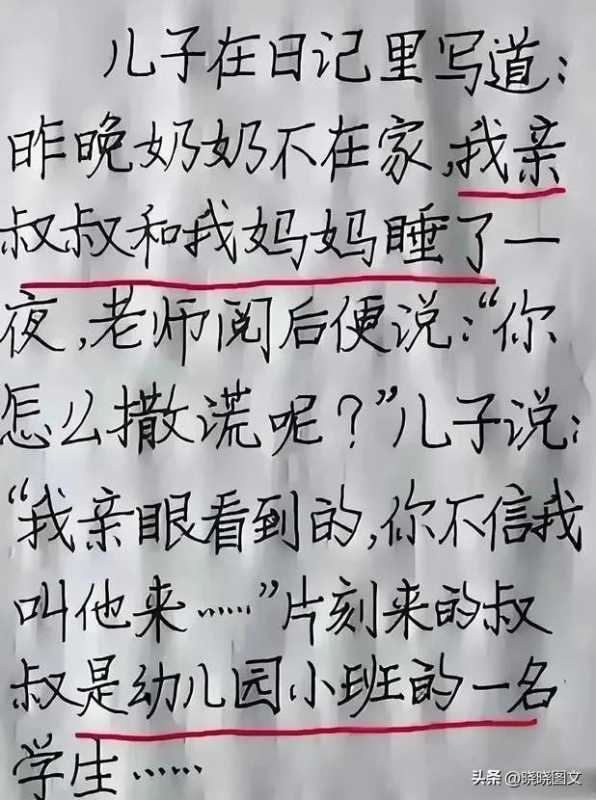 儿子在日记里写道：
昨晚奶奶不在家，我亲
叔叔和我妈妈睡了一
夜，老师阅后便说：“你
怎么撒谎呢？”儿子说：
“我亲眼看到的，你不信我
叫他来……”片刻来的叔
叔是幼儿园小班的一名
学生……
头条 @晓晓图文